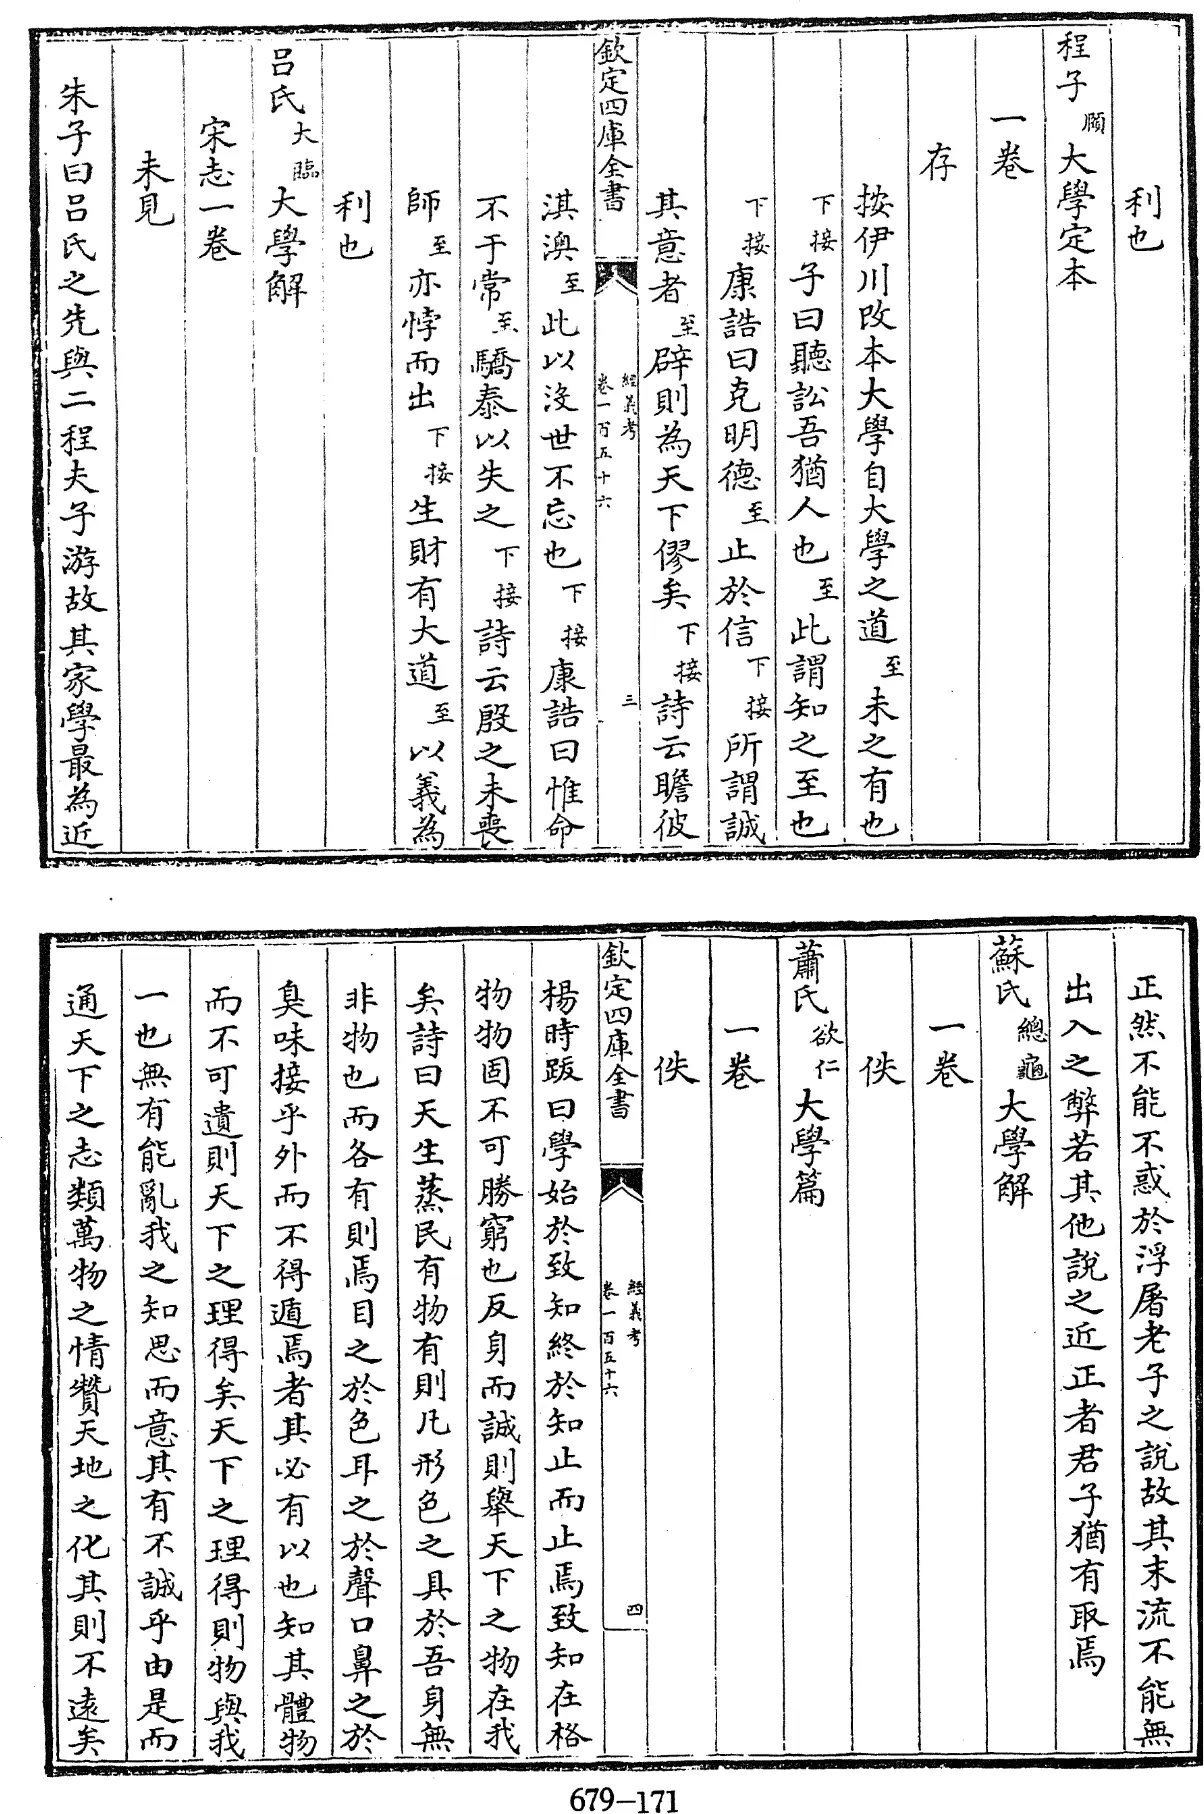 利也
程子頤大學定本
一卷
存
按伊川改本大學自大學之道至未之有也
下接子曰聽訟吾猶人也至此謂知之至也
下接康誥曰克明德至止於信下接所謂誠
其意者至辟則為天下僇矣下接詩云瞻彼
欽定四庫全書
經義考
卷一百五十六
三
淇澳至此以沒世不忘也下接康誥曰惟命
不于常至驕泰以失之下接詩云殷之未喪
師至亦悖而出下接生財有大道至以義為
利也
呂氏大臨大學解
宋志一卷
未見
朱子曰呂氏之先與二程夫子游故其家學最為近
正然不能不惑於浮屠老子之說故其末流不能無
出入之弊若其他說之近正者君子猶有取焉
蘇氏總龜大學解
一卷
佚
蕭氏欲仁大學篇
一卷
佚
欽定四庫全書
經義考
卷一百五十六
四
楊時跋曰學始於致知終於知止而止焉致知在格
物物固不可勝窮也反身而誠則舉天下之物在我
矣詩曰天生蒸民有物有則凡形色之具於吾身無
非物也而各有則焉目之於色耳之於聲口鼻之於
臭味接乎外而不得遁焉者其必有以也知其體物
而不可遺則天下之理得矣天下之理得則物與我
一也無有能亂我之知思而意其有不誠乎由是而
通天下之志類萬物之情贊天地之化其則不遠矣
679-171